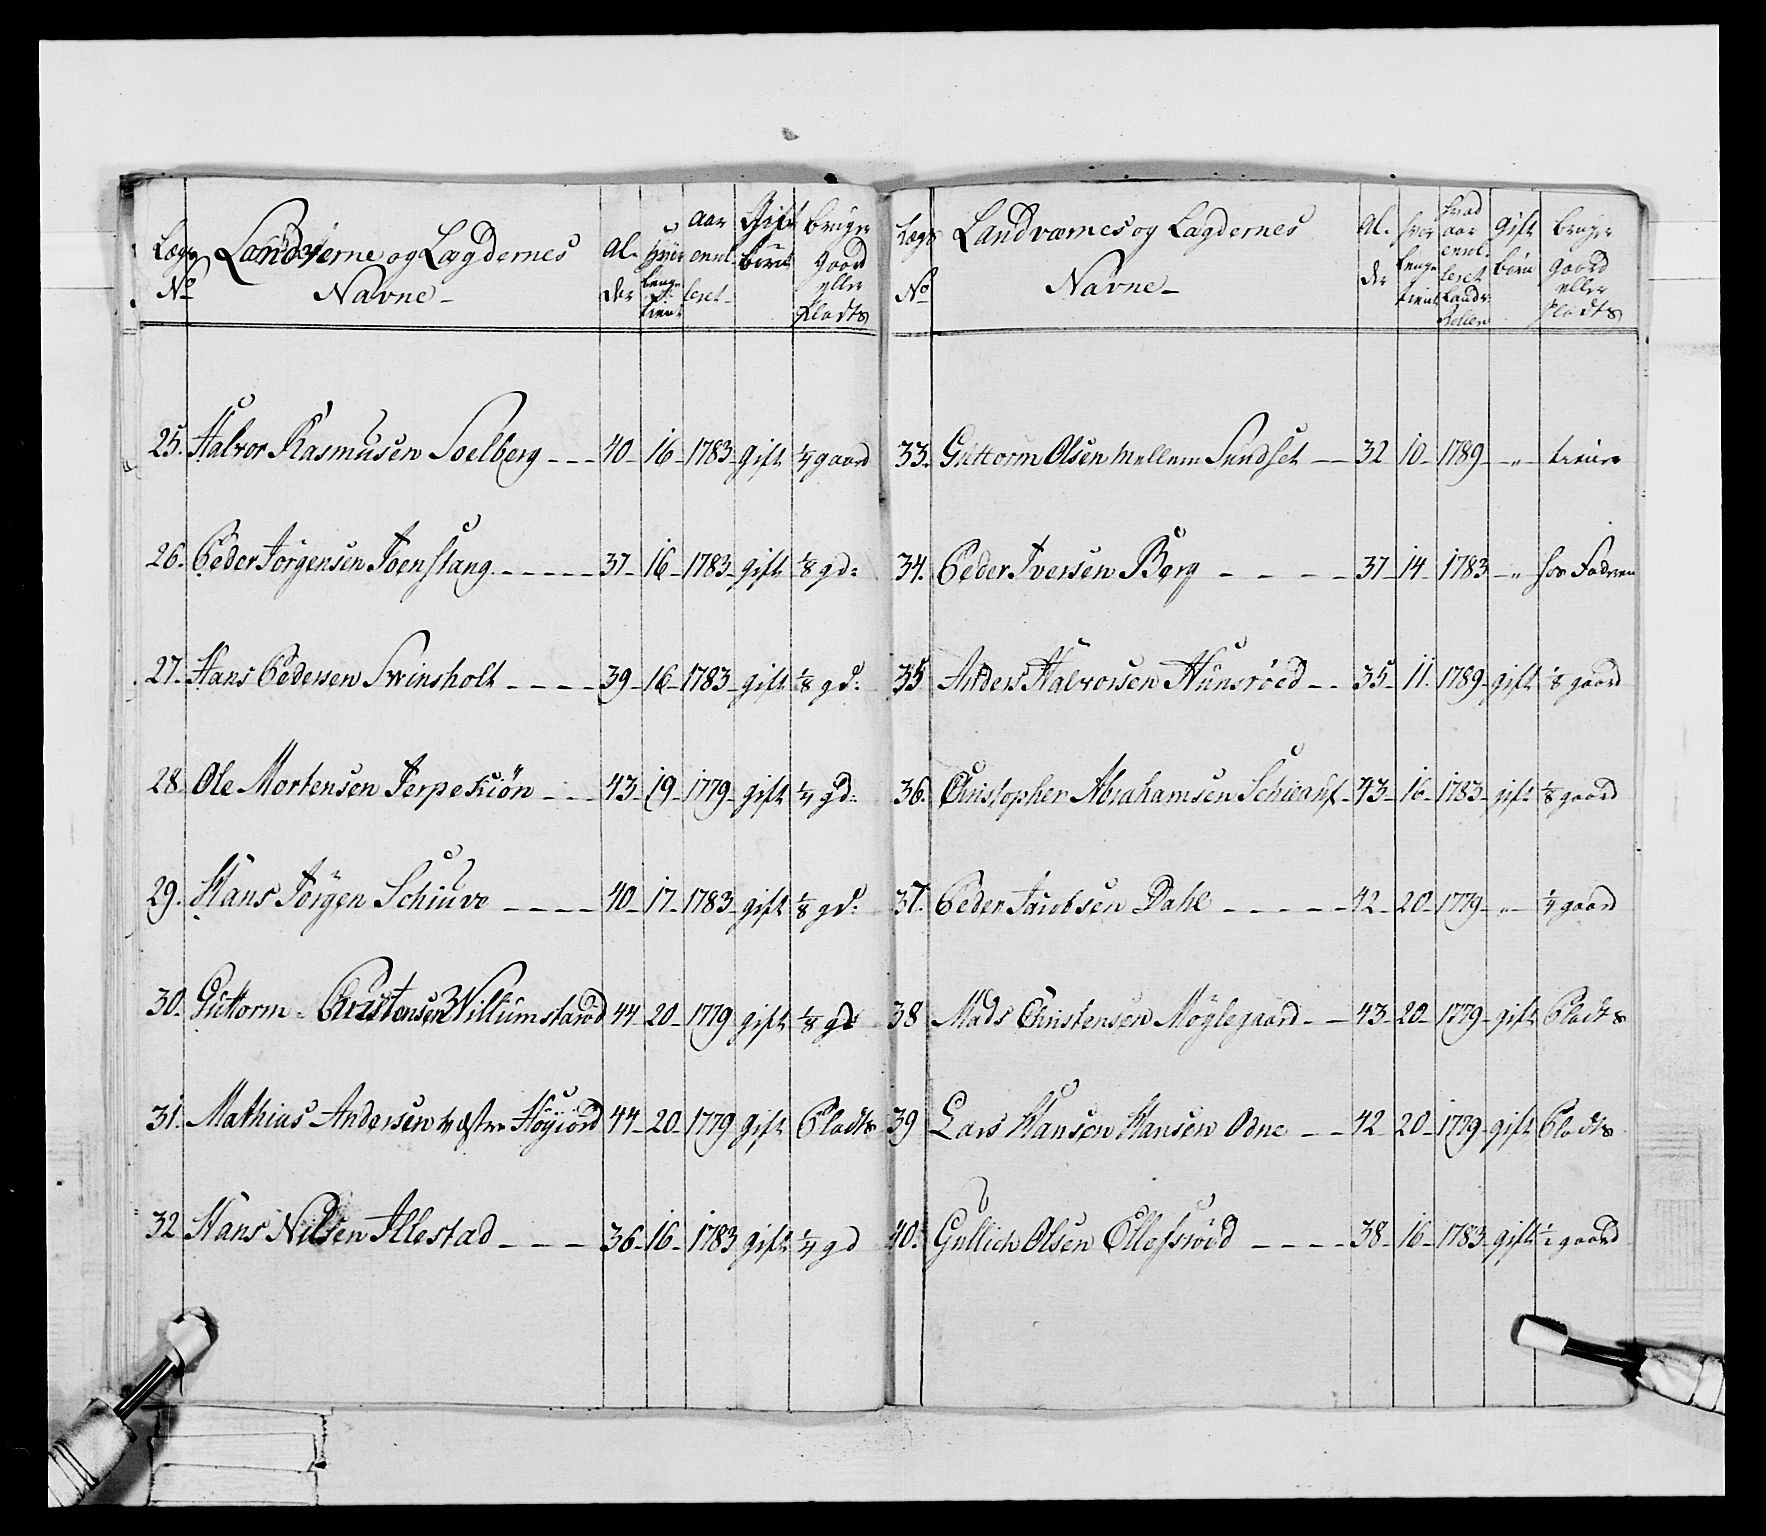 Lægs No | Landværne og Lægdernes Navne | Al-der | Hvor længe tient | aar enrolleret | Gift børn | bruger gaard eller Pladts
25. Halvor Rasmusen Soelberg | 40 | 16 | 1783 | gift | 1/4 gaard
26. Peder Jørgensen Joenslang | 37 | 16 | 1783 | gift | 1/8 gd:
27. Hans Pedersen Svinsholt | 39 | 16 | 1783 | gift | 1/8 gd:
28. Ole Mortensen Jerpekiön | 43 | 19 | 1779 | gift | 1/4 gd:
29. Hans Jørgen Schiuve | 40 | 17 | 1783 | gift | 1/8 gd:
30. Guttorm Christensen Willumstarød | 44 | 20 | 1779 | gift | 1/8 gd
31. Mathias Andersen Westre Høyjord | 44 | 20 | 1779 | gift | Pladts
32. Hans Nilsen Illestad | 36 | 16 | 1783 | gift | 1/4 gd
Lægs No | Landværnes og Lægdernes Navne | Al-der | hvor længe tient | hvad aar enrolleret Landv: Rollen | Gift børn | bruger gaard eller Pladts
33. Guttorm Olsen Mellem Sundset | 32 | 10 | 1789 | " | tiener
34. Peder Iversen Berg | 37 | 14 | 1783 | " | hos Faderen
35 Anders Halvorsen Hunsrøed | 35 | 11 | 1789 | gift | 1/8 gaard
36. Christopher Abrahamsen | 43 | 16 | 1783 | gift | 1/8 gaard
37. Peder Jacobsen Dahl | 42 | 20 | 1779 | " | 1/4 gaard
38 Mads Christensen Møglegaard | 43 | 20 | 1779 | gift | Pladts
39 Lars Hansen Hansen Odne | 42 | 20 | 1779 | gift | Pladts
40. Gullich Olsen Ellefsrød | 38 | 16 | 1783 | gift | 1/2 gaard